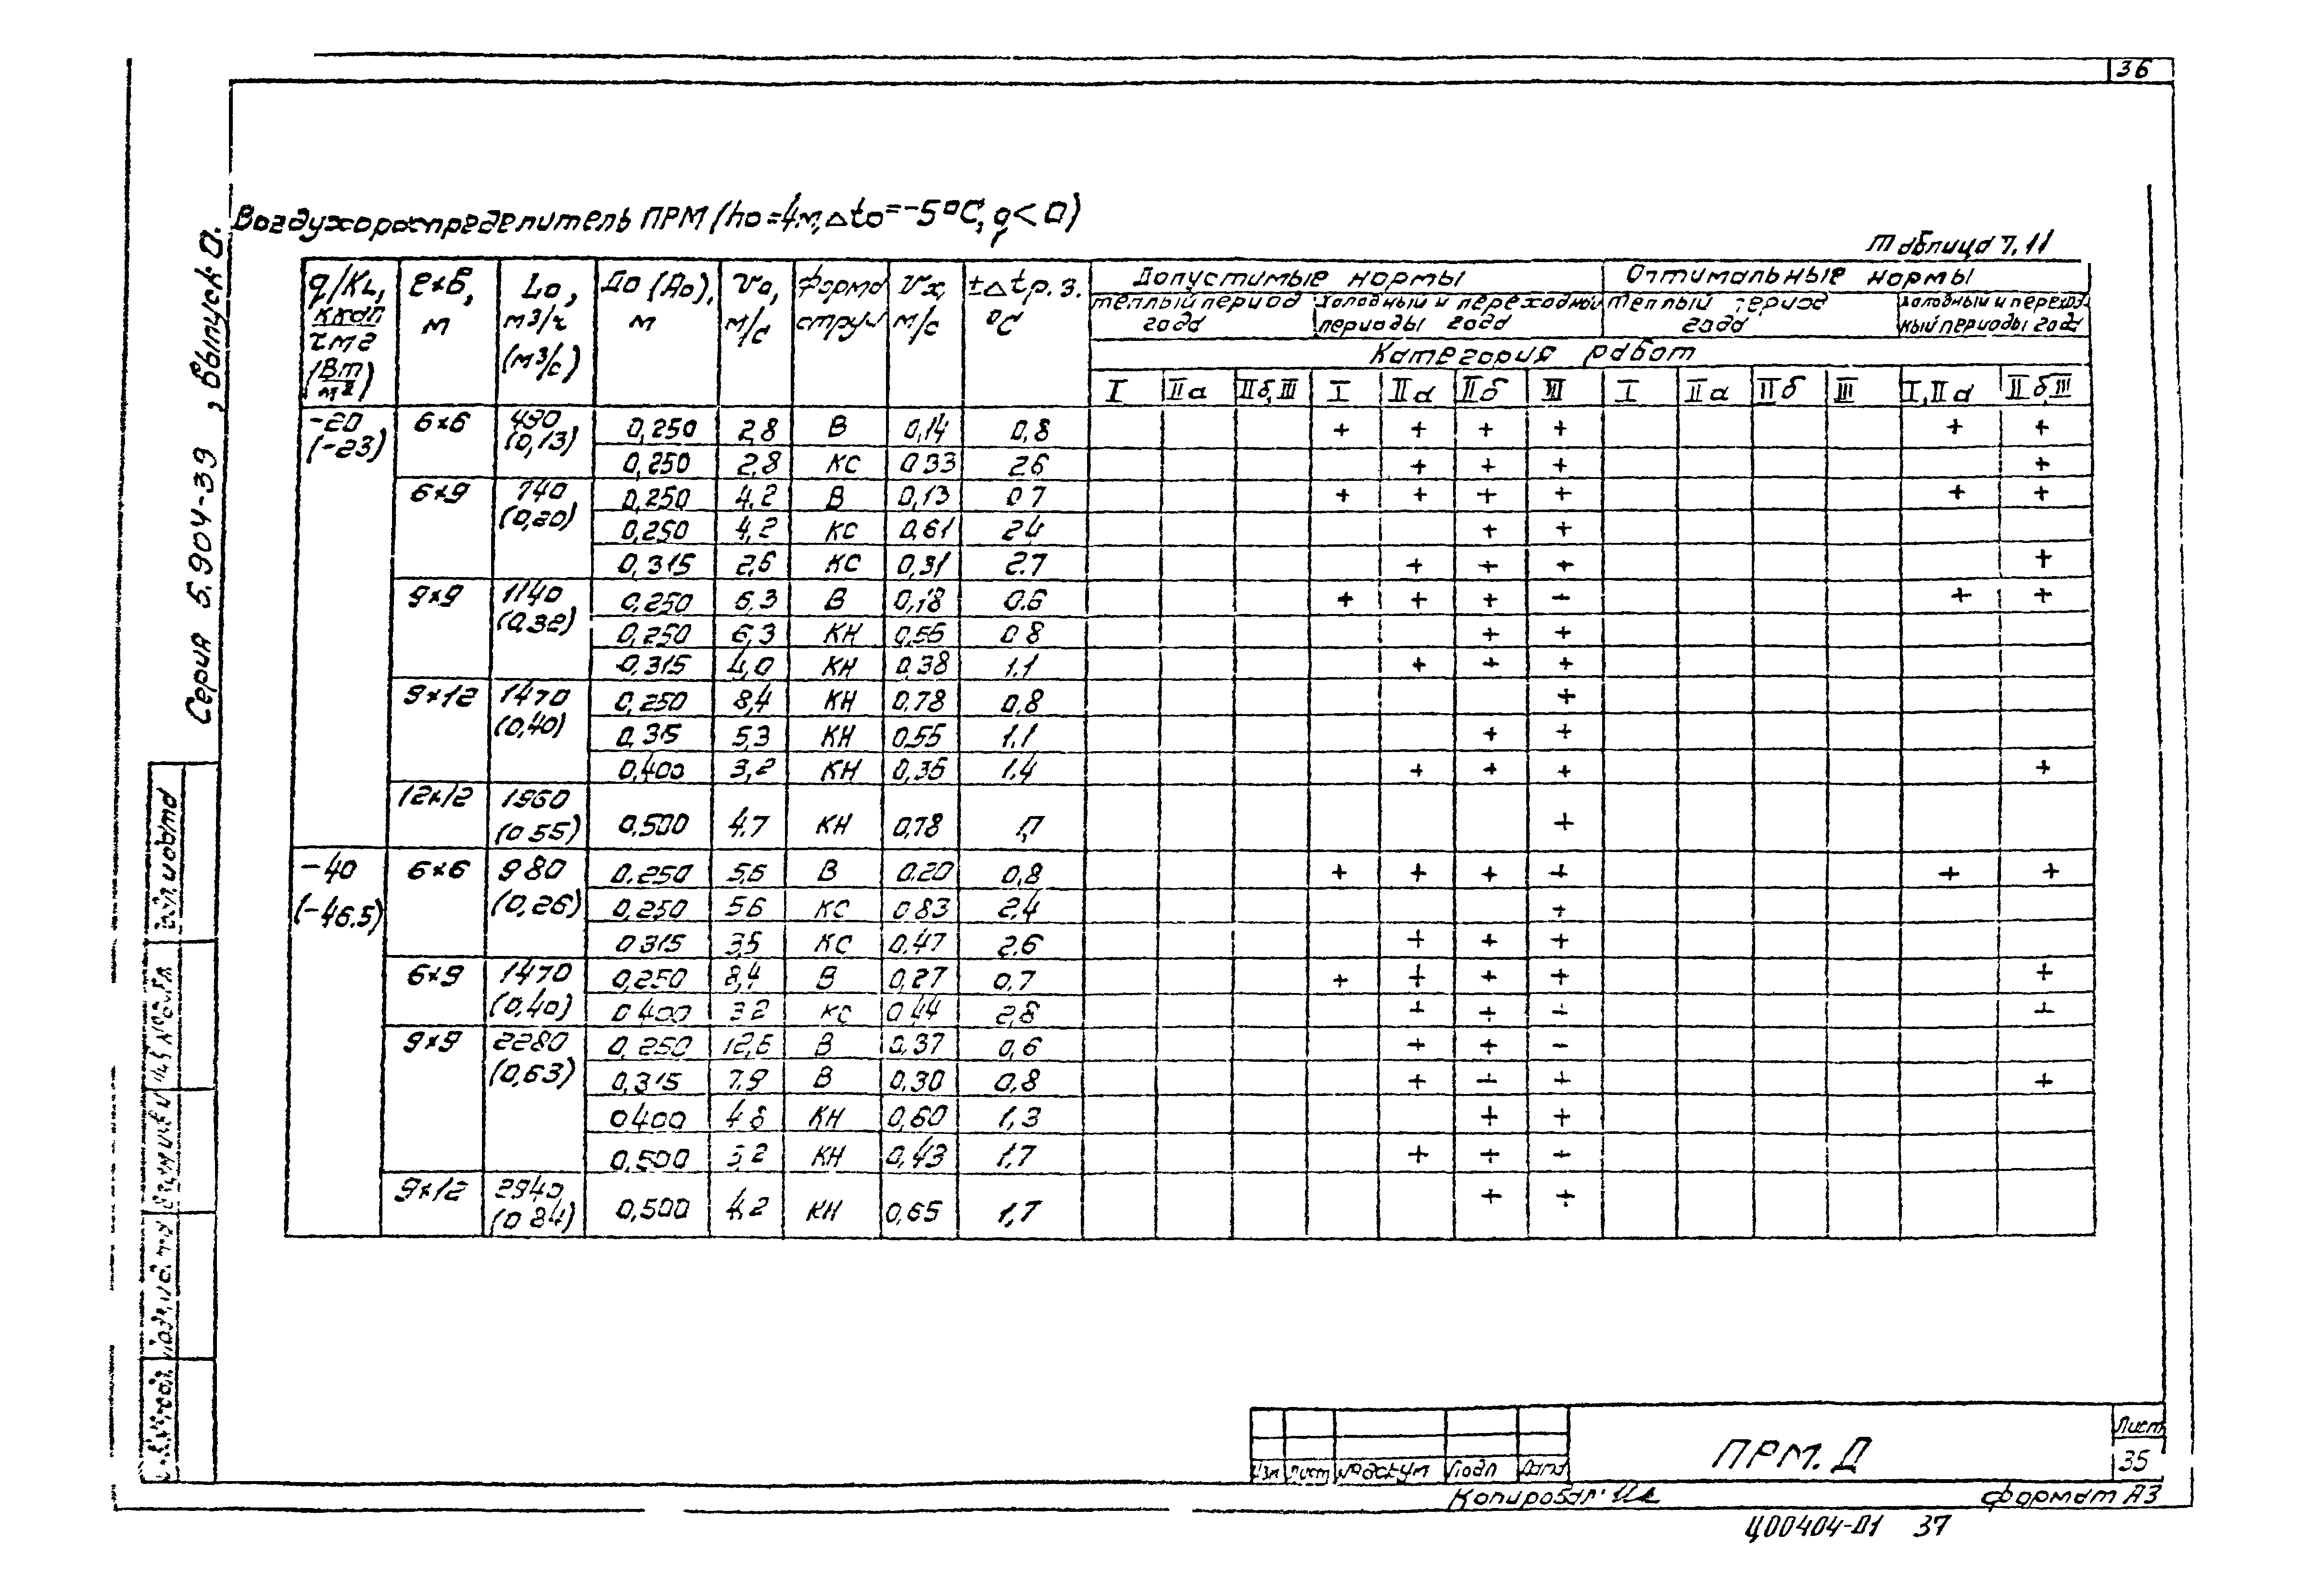 36
Серия 5.904-39, выпуск 0.
Воздухораспределитель ПРМ (ho=4м, Δto=-5°С, q<0)
Таблица 7.11
q/KL, ккал/чм2 (Вт/м2) | ахб, м | Lo, м3/ч (м3/с) | До (Ао), м | vо, м/с | Форма струи | vх, м/с | ±Δtр.з. °С | Допустимые нормы | Оптимальные нормы
теплый период года | холодный и переходной периоды года | теплый период года | холодный и переходный периоды года
Категория работ
I | IIа | IIб,III | I | IIа | IIб | III | I | IIа | IIб | III | I,IIа | IIб,III
-20 (-23) | 6х6 | 490 (0,13) | 0,250 | 2,8 | В | 0,14 | 0,8 | + | + | + | + | + | +
0,250 | 2,8 | КС | 0,33 | 2,6 | + | + | + | +
6х9 | 740 (0,20) | 0,250 | 4,2 | В | 0,13 | 0,7 | + | + | + | + | + | +
0,250 | 4,2 | КС | 0,61 | 2,4 | + | +
0,315 | 2,6 | КС | 0,31 | 2,7 | + | + | + | +
9х9 | 1140 (0,32) | 0,250 | 6,3 | В | 0,18 | 0,6 | + | + | + | - | + | +
0,250 | 6,3 | КН | 0,55 | 0,8 | + | +
0,315 | 4,0 | КН | 0,38 | 1,1 | + | + | +
9х12 | 1470 (0,40) | 0,250 | 8,4 | КН | 0,78 | 0,8 | +
0,315 | 5,3 | КН | 0,55 | 1,1 | + | +
0,400 | 3,2 | КН | 0,35 | 1,4 | + | + | + | +
12х12 | 1960 (0,55) | 0,500 | 4,7 | КН | 0,78 | 1,7 | +
-40 (-46,5) | 6х6 | 980 (0,26) | 0,250 | 5,6 | В | 0,20 | 0,8 | + | + | + | + | + | +
0,250 | 5,6 | КС | 0,83 | 2,4 | +
0,315 | 3,5 | КС | 0,47 | 2,6 | + | + | +
6х9 | 1470 (0,40) | 0,250 | 8,4 | В | 0,27 | 0,7 | + | + | + | + | +
0,400 | 3,2 | КС | 0,44 | 2,8 | + | + | + | +
9х9 | 2280 (0,63) | 0,250 | 12,6 | В | 0,37 | 0,6 | + | + | -
0,315 | 7,9 | В | 0,30 | 0,8 | + | + | + | +
0,400 | 4,8 | КН | 0,60 | 1,3 | + | +
0,500 | 3,2 | КН | 0,43 | 1,7 | + | + | +
9х12 | 2940 (0,84) | 0,500 | 4,2 | КН | 0,65 | 1,7 | + | +
Изм Лист № докум Подп Дата
ПРМ.Д
Лист
35
Копировал:
Формат А3
Ц00404-01 37